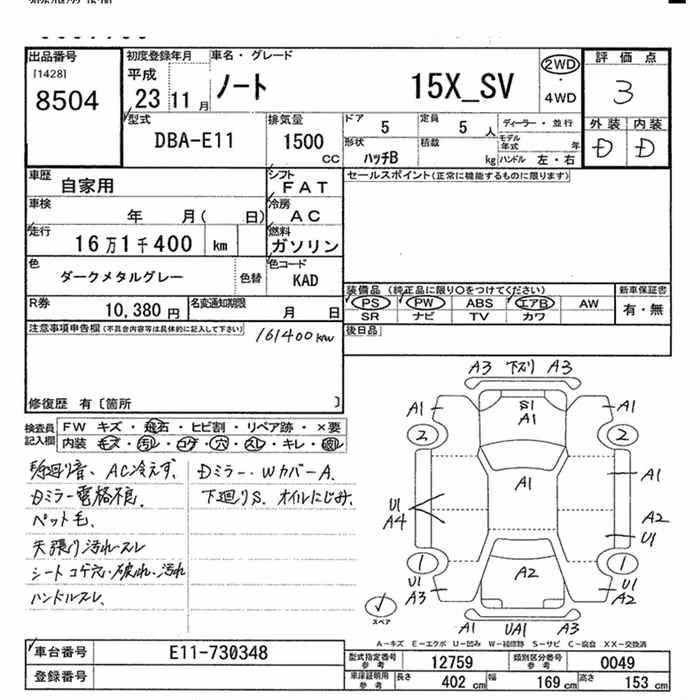 出品番号
[1428]
8504
初度登録年月
平成
23 11月
車名・グレード
ノート 15X_SV
2WD
・
4WD
評価点
3
外装 内装
D D
型式
DBA-E11
排気量
1500
cc
ドア
5
定員
5 人
ディーラー・並行
モデル年式 年
形状
ハッチB
積載
kg
ハンドル 左・右
車歴
自家用
シフト
FAT
セールスポイント(正常に機能するものに限ります)
車検
年 月( 日)
冷房
AC
走行
16万1千400 km
燃料
ガソリン
色
ダークメタルグレー
色替
色コード
KAD
装備品(純正品に限り○をつけてください)
PS PW ABS エアB AW
SR ナビ TV カワ
新車保証書
有・無
R券
10,380 円
名変通知期限
月 日
後日品
注意事項申告欄(不具合内容等は具体的に記入して下さい)
161400km
修復歴 有〔箇所 〕
検査員記入欄
FW キズ・飛石・ヒビ割・リペア跡・×要
内装 キズ・汚レ・コゲ・穴・スレ・キレ・
AC冷えず、
Dミラー電格不良、
ペット毛、
天張り汚れスレ
シートコゲ穴・破れ、汚れ
ハンドルスレ、
Dミラー・WカバーA、
下廻りS、オイルにじみ、
A3 下ズリ A3
A1 S1 A1
A1
2 2
A1 A1
U1 A2
A4 U1
1 1
U1 A2 U1
A3 A2
スペア
A1 UA1 A3
A-キズ E-エクボ U-凹み W-補修跡 S-サビ C-腐食 XX-交換済
車台番号
E11-730348
登録番号
型式指定番号
参考
12759
類別区分番号
参考
0049
車庫証明用
参考
長さ 402 cm
幅 169 cm
高さ 153 cm